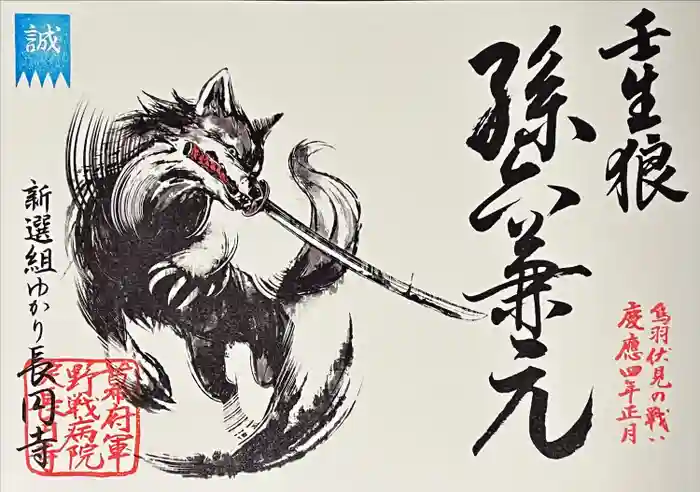 壬生狼
孫六兼元
鳥羽伏見の戦い
慶應四年正月
誠
新選組ゆかり長円寺
幕府軍
野戦病院